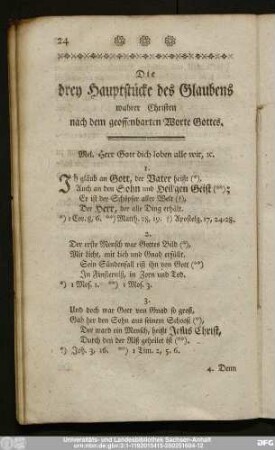 24
Die
drey Hauptstücke des Glaubens
wahrer Christen
nach dem geoffenbarten Worte Gottes.
Mel. Herr Gott dich loben alle wir, ꝛc.
1.
Ich gläub an Gott, der Vater heißt (*),
Auch an den Sohn und Heil'gen Geist (**);
Er ist der Schöpfer aller Welt (†),
Der Herr, der alle Ding erhält.
*) 1 Cor. 8, 6. **) Matth. 28, 19. †) Apostelg. 17, 24-28.
2.
Der erste Mensch war Gottes Bild (*),
Mit Licht, mit Lieb und Gnad erfüllt,
Sein Sündenfall riß ihn von Gott (**)
In Finsterniß, in Zorn und Tod.
*) 1 Mos. 1. **) 1 Mos. 3.
3.
Und doch war Gott von Gnad so groß,
Gab her den Sohn aus seinem Schooß (*),
Der ward ein Mensch, heißt Jesus Christ,
Durch den der Riß geheilet ist (**).
*) Joh. 3, 16. **) 1 Tim. 2, 5. 6.
4. Denn
Universitäts- und Landesbibliothek Sachsen-Anhalt